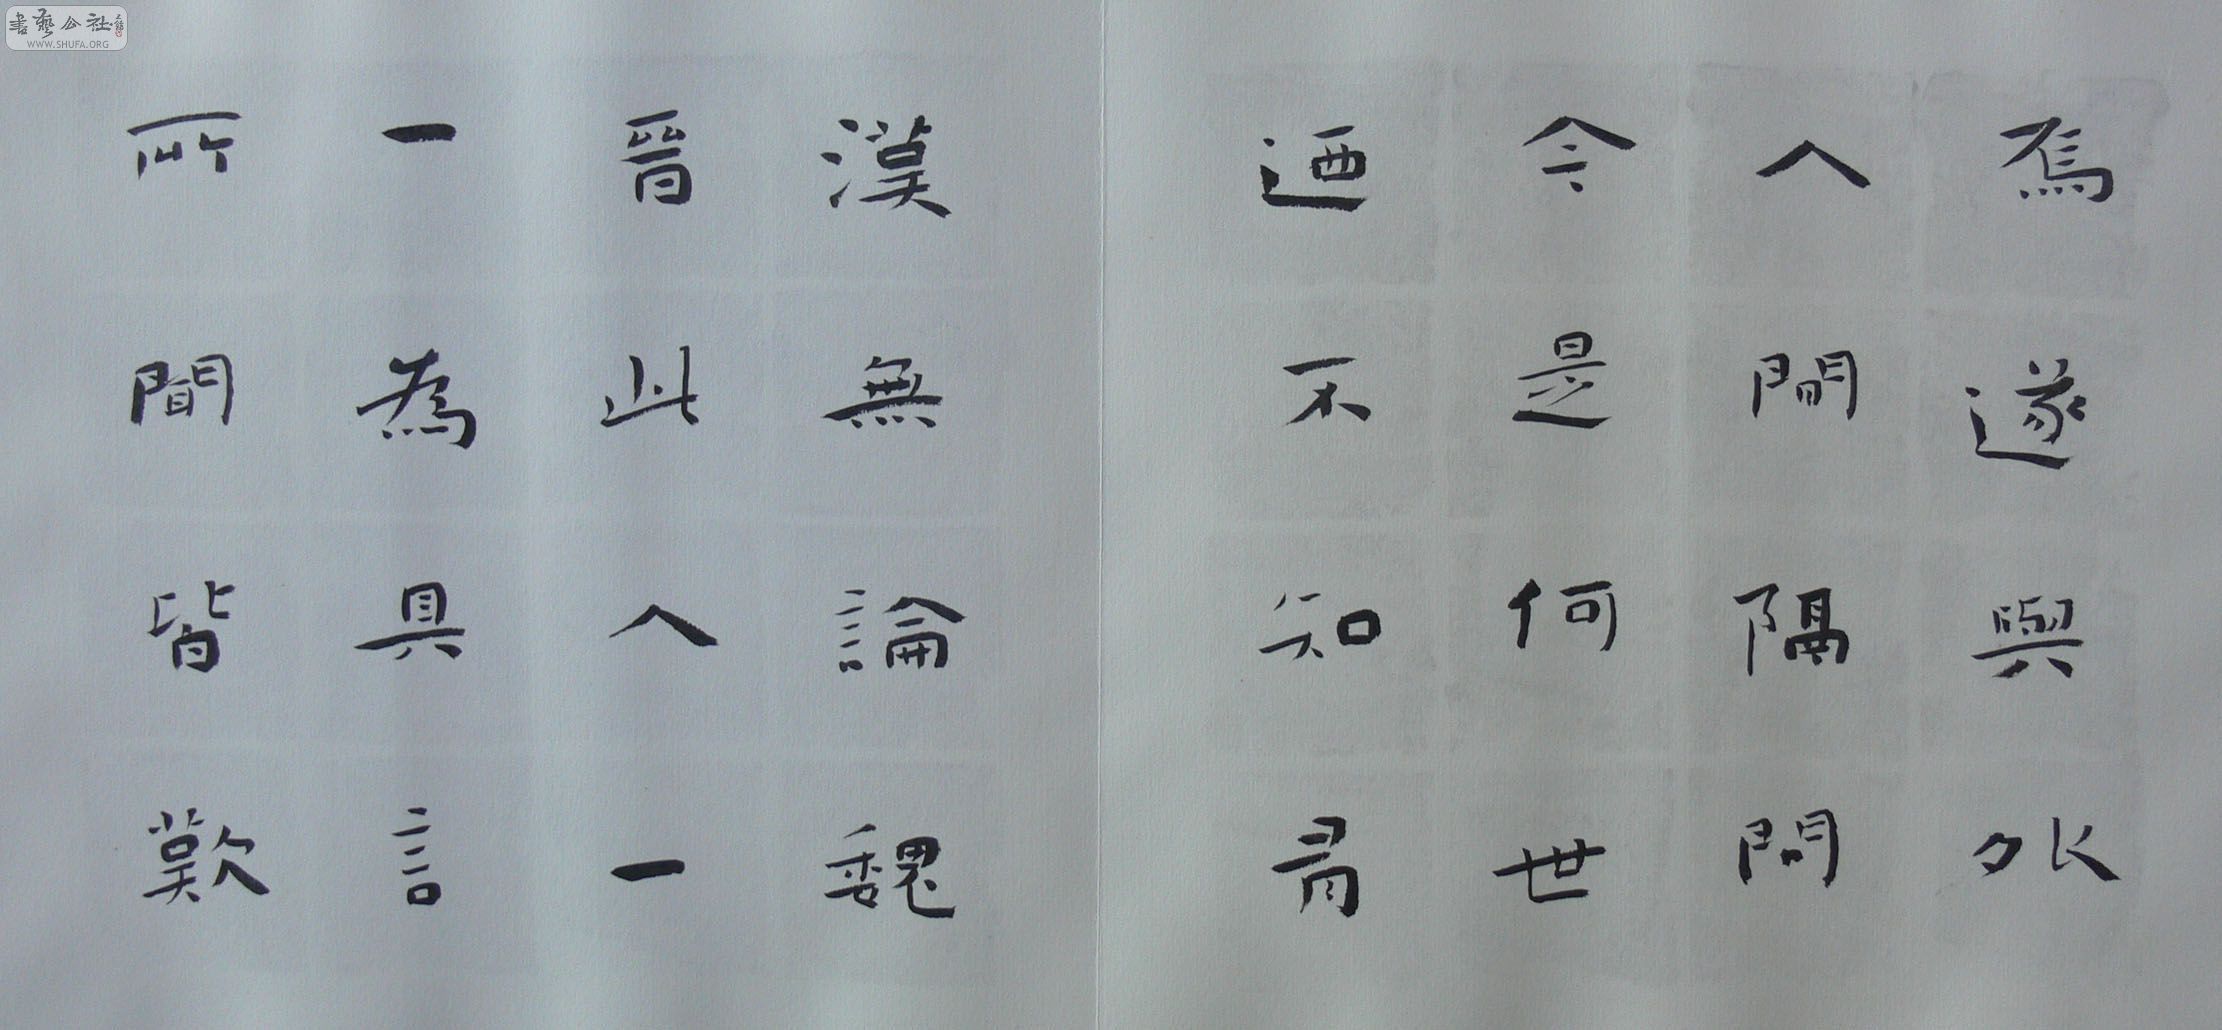 焉遂與外
人間隔問
今是何世
迺不知有
漢無論魏
晉此人一
一為具言
所聞皆歎
書藝公社
WWW.SHUFA.ORG